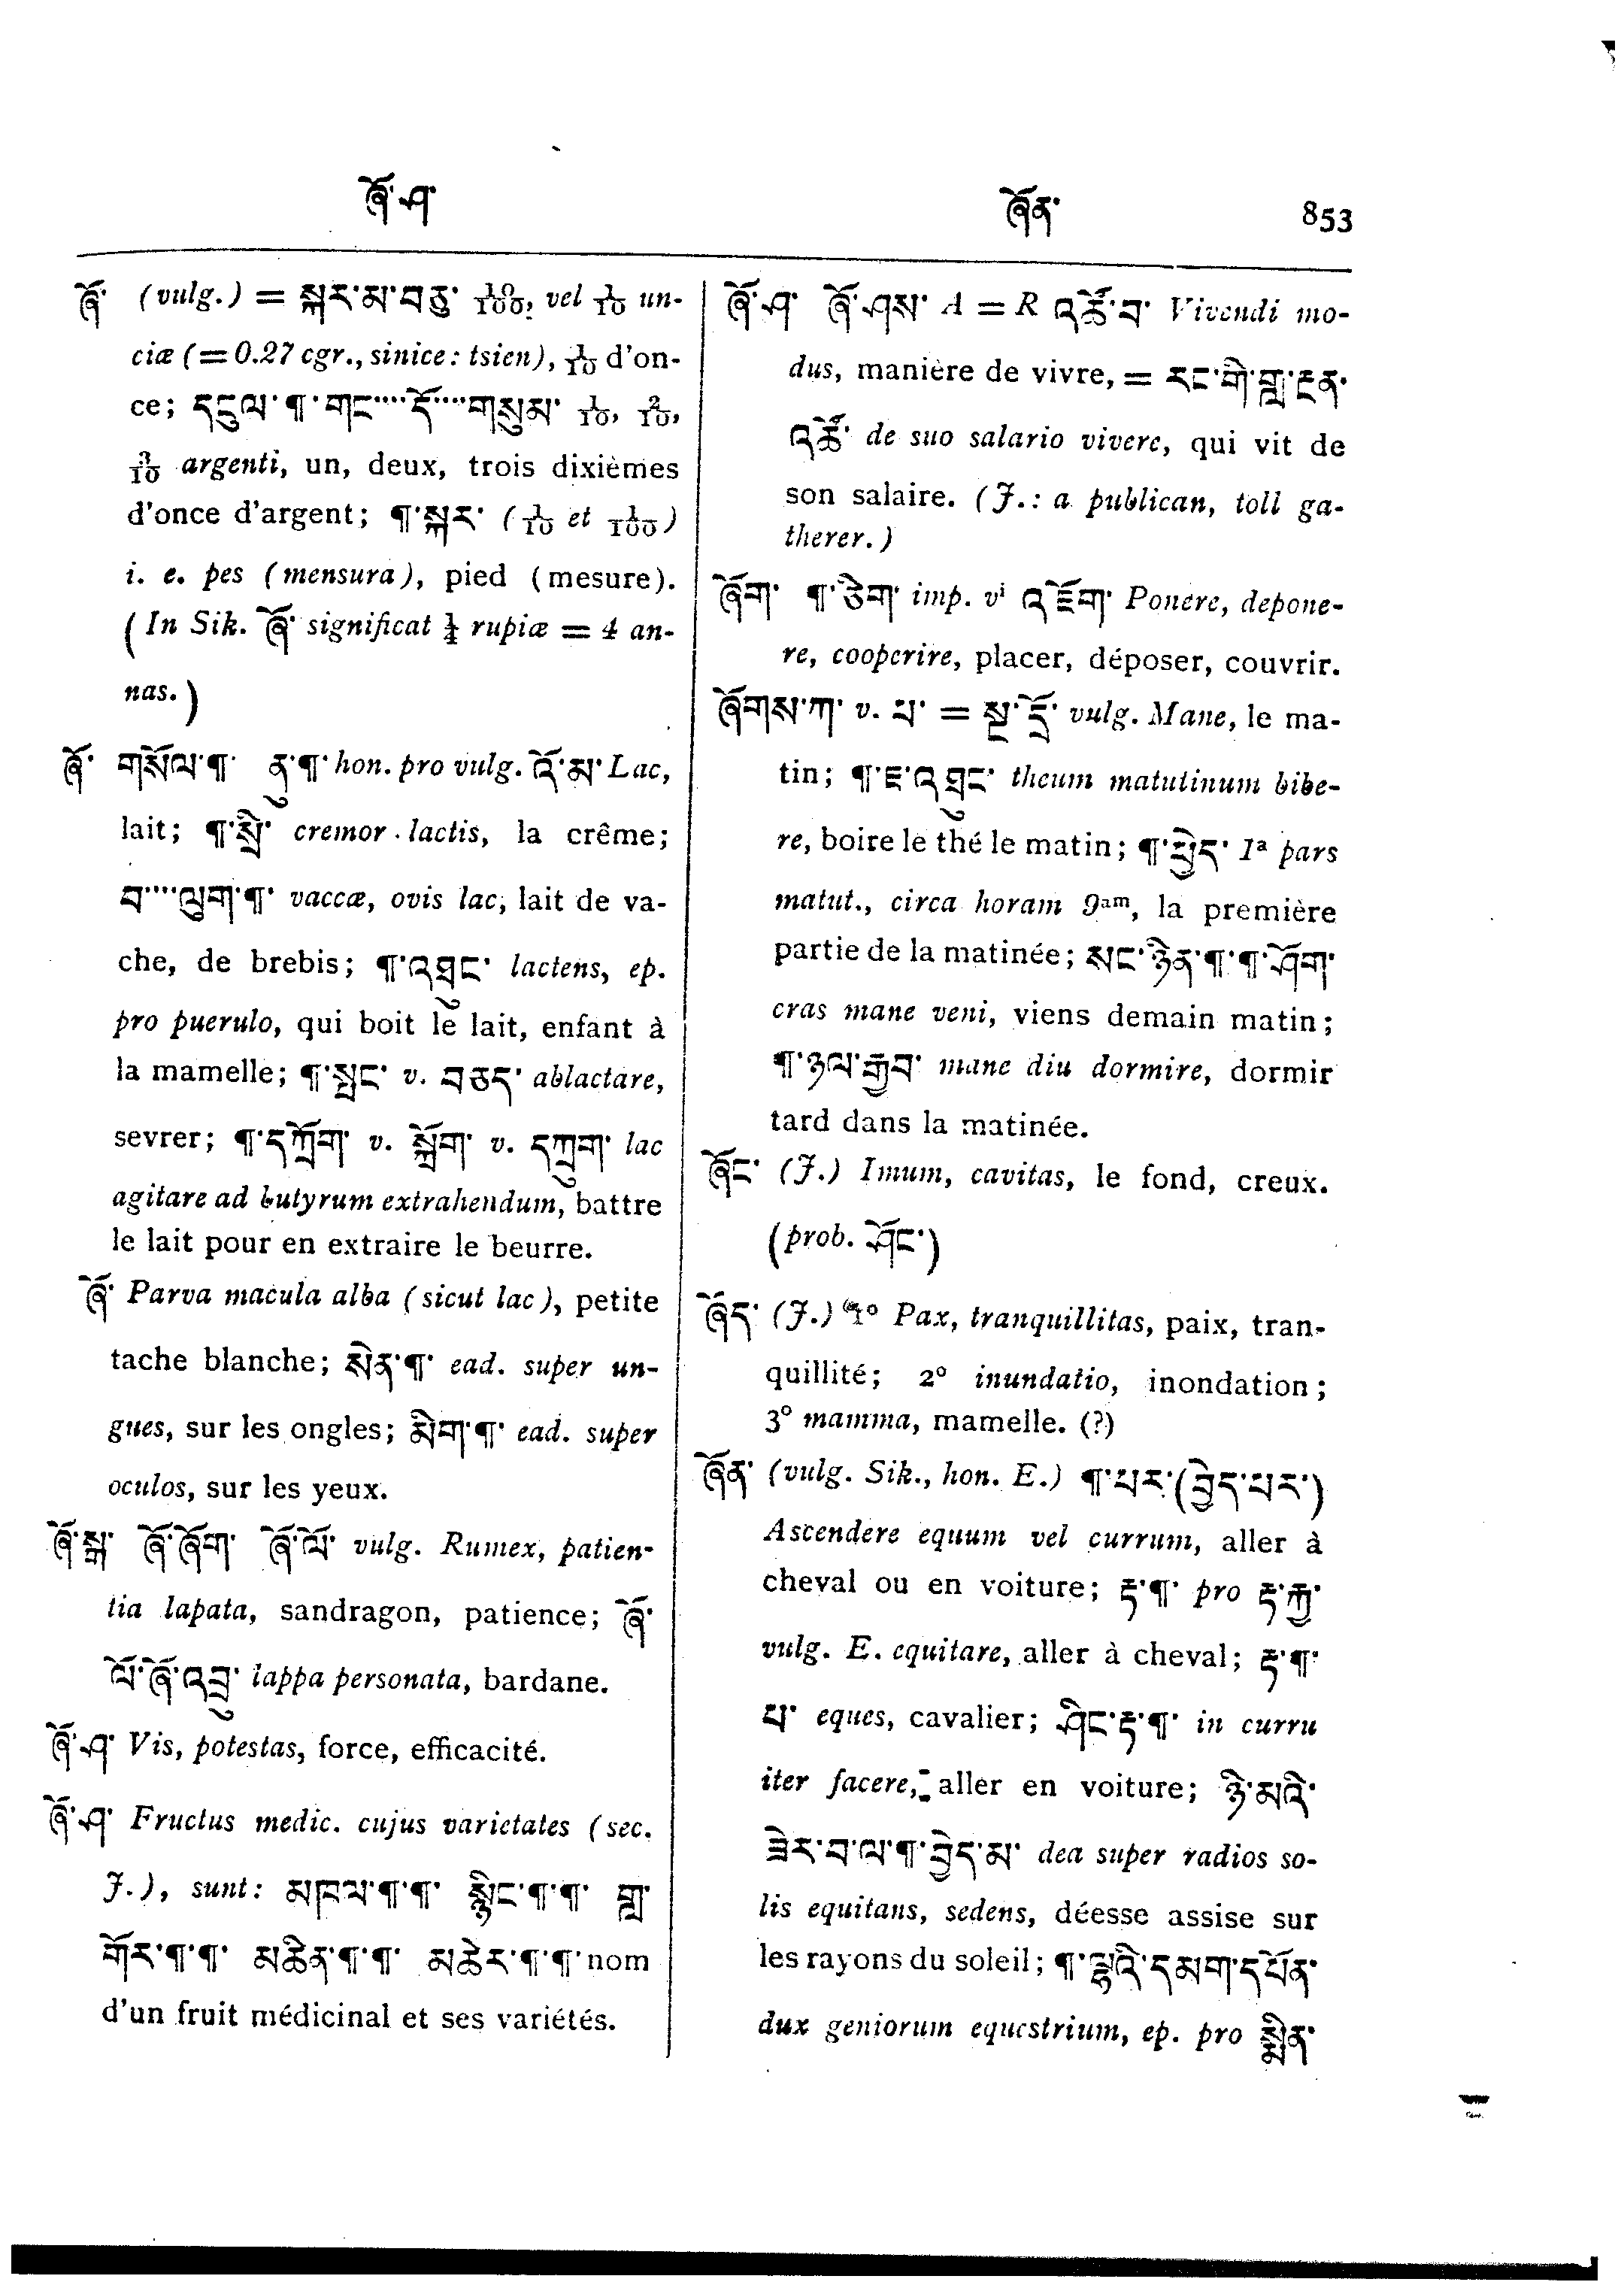 ཞོ་ཤ་
ཞོན་ 853
ཞོ་ (vulg.) = སྐར་མ་བཅུ་ 10/100, vel 1/10 un-
ciæ (= 0.27 cgr., sinice: tsien), 1/10 d'on-
ce; དངུལ་¶་གང་····དོ་····གསུམ་ 1/10, 2/10,
3/10 argenti, un, deux, trois dixièmes
d'once d'argent; ¶་སྐར་ (1/10 et 1/100)
i. e. pes (mensura), pied (mesure).
(In Sik. ཞོ་ significat 1/4 rupiæ = 4 an-
nas.)
ཞོ་ གསོལ་¶་ ནུ་¶་ hon. pro vulg. འོ་མ་ Lac,
lait; ¶་སྲི་ cremor lactis, la crême;
བ་····ལུག་¶་ vaccæ, ovis lac, lait de va-
che, de brebis; ¶་འཐུང་ lactens, ep.
pro puerulo, qui boit le lait, enfant à
la mamelle; ¶་སྤང་ v. བཅད་ ablactare,
sevrer; ¶་དཀྲོག་ v. སྐྲོག་ v. དཀྲུག་ lac
agitare ad butyrum extrahendum, battre
le lait pour en extraire le beurre.
ཞོ་ Parva macula alba (sicut lac), petite
tache blanche; སེན་¶་ ead. super un-
gues, sur les ongles; མིག་¶་ ead. super
oculos, sur les yeux.
ཞོ་སྒ་ ཞོ་ཞོག་ ཞོ་ལོ་ vulg. Rumex, patien-
tia lapata, sandragon, patience; ཞོ་
ལོ་ཞོ་འབྲུ་ lappa personata, bardane.
ཞོ་ཤ་ Vis, potestas, force, efficacité.
ཞོ་ཤ་ Fructus medic. cujus varietates (sec.
J.), sunt: མཁལ་¶་¶་ སྙིང་¶་¶་ གླ་
གོར་¶་¶་ མཆིན་¶་¶་ མཆེར་¶་¶་ nom
d'un fruit médicinal et ses variétés.
ཞོ་ཤ་ ཞོ་ཤས་ A = R འཚོ་བ་ Vivendi mo-
dus, manière de vivre, = རང་གི་གླ་རྔན་
འཚོ་ de suo salario vivere, qui vit de
son salaire. (J.: a publican, toll ga-
therer.)
ཞོག་ ¶་ཅིག་ imp. vi འཇོག་ Ponere, depone-
re, cooperire, placer, déposer, couvrir.
ཞོགས་ཀ་ v. པ་ = སྔ་དྲོ་ vulg. Mane, le ma-
tin; ¶་ཇ་འཐུང་ theum matutinum bibe-
re, boire le thé le matin; ¶་ཕྱེད་ 1a pars
matut., circa horam 9am, la première
partie de la matinée; སང་ཉིན་¶་¶་ཤོག་
cras mane veni, viens demain matin;
¶་ཉལ་རྒྱབ་ mane diu dormire, dormir
tard dans la matinée.
ཞོང་ (J.) Imum, cavitas, le fond, creux.
(prob. ཤོང་)
ཞོད་ (J.) 1º Pax, tranquillitas, paix, tran-
quillité; 2º inundatio, inondation;
3º mamma, mamelle. (?)
ཞོན་ (vulg. Sik., hon. E.) ¶་པར་(བྱེད་པར་)
Ascendere equum vel currum, aller à
cheval ou en voiture; རྟ་¶་ pro རྟ་རྐྱ་
vulg. E. equitare, aller à cheval; རྟ་¶་
པ་ eques, cavalier; ཤིང་རྟ་¶་ in curru
iter facere, aller en voiture; ཉི་མའི་
ཟེར་བ་ལ་¶་བྱེད་མ་ dea super radios so-
lis equitans, sedens, déesse assise sur
les rayons du soleil; ¶་ལྷའི་དམག་དཔོན་
dux geniorum equestrium, ep. pro སྨིན་